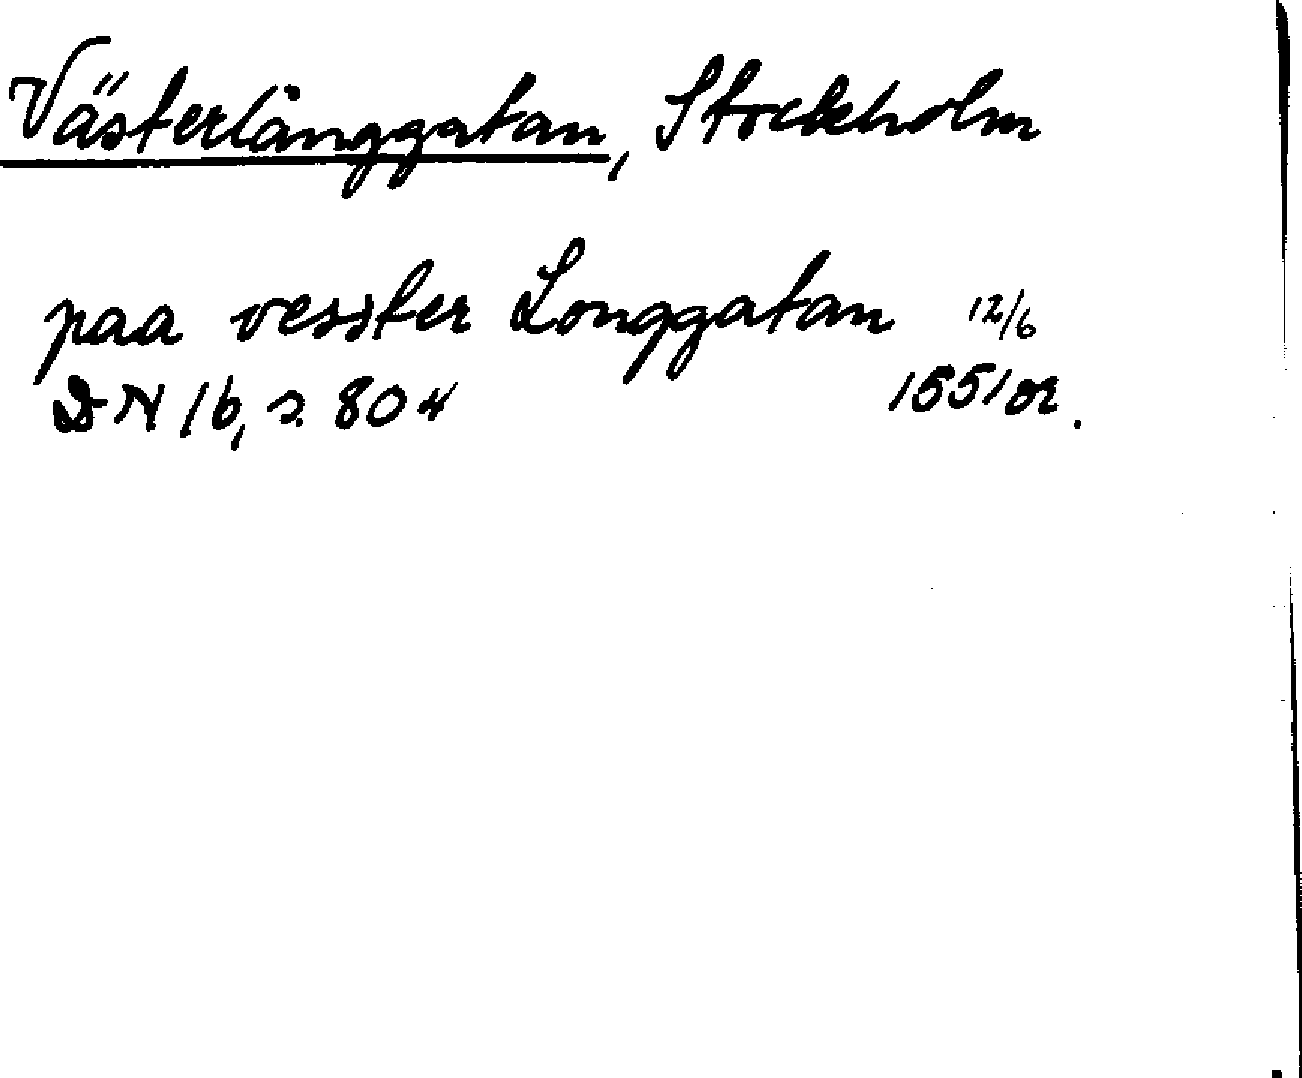 Västerlånggatan, Stockholm
paa vesster Longgatan 12/6
DN 16, s. 804 1551 or.